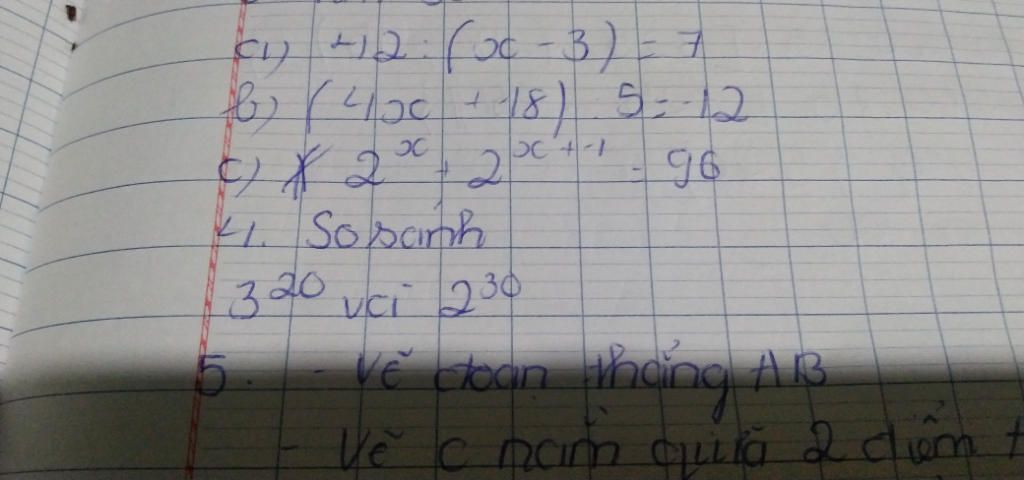 a) 42 : (x - 3) = 7
b) (4x + 18) 5 = 12
c) 2^x + 2^x+1 = 96
4. So sánh
3^20 với 2^30
5. - Vẽ đoạn thẳng AB
- Vẽ C nằm giữa 2 điểm